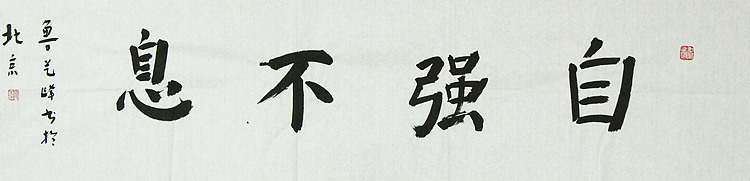 自强不息
鲁光峰书於
北京